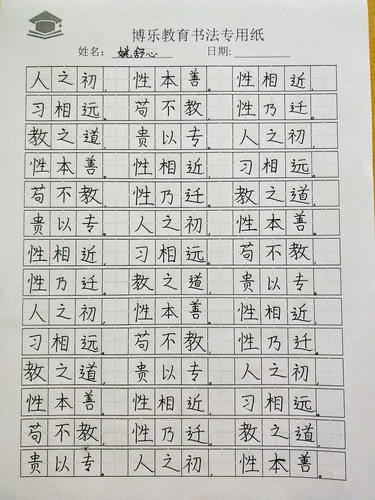 博乐教育书法专用纸
姓名： 姚舒心 日期:
人之初， 性本善。 性相近，
习相远。 苟不教， 性乃迁。
教之道， 贵以专。 人之初，
性本善。 性相近， 习相远。
苟不教， 性乃迁。 教之道，
贵以专。 人之初， 性本善。
性相近， 习相远。 苟不教，
性乃迁。 教之道， 贵以专。
人之初， 性本善。 性相近，
习相远。 苟不教， 性乃迁。
教之道， 贵以专。 人之初，
性本善。 性相近， 习相远。
苟不教， 性乃迁。 教之道，
贵以专。 人之初， 性本善。